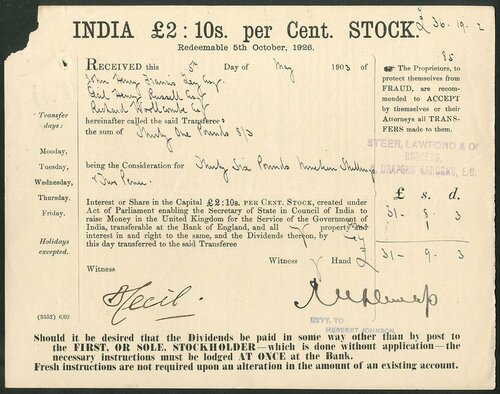 £36.19.2
INDIA £2 : 10s. per Cent. STOCK.
Redeemable 5th October, 1926.
85
RECEIVED this 5th Day of May 1903 of
John Henry Francis Esq
Cecil Henry Russell Esq
Richard Woollcombe Esq
hereinafter called the said Transferees
the sum of Thirty One Pounds 8/3
being the Consideration for Thirty Six Pounds Nineteen Shillings
& Two Pence
Interest or Share in the Capital £2 : 10s. PER CENT. STOCK, created under
Act of Parliament enabling the Secretary of State in Council of India to
raise Money in the United Kingdom for the Service of the Government of
India, transferable at the Bank of England, and all my property and
interest in and right to the same, and the Dividends thereon, by
this day transferred to the said Transferees
Witness my Hand
Witness
Cecil.
Transfer
days:
Monday,
Tuesday,
Wednesday,
Thursday,
Friday,
Holidays
excepted.
☛ The Proprietors, to
protect themselves from
FRAUD, are recom-
mended to ACCEPT
by themselves or their
Attorneys all TRANS-
FERS made to them.
STEER, LAWFORD & Co
BROKERS,
DRAPERS GARDENS, E.C.
£ s. d.
31 - 8 . 3
1
31 - 9 . 3
ENTY. TO
HERBERT JOHNSON.
(3552) 6/02
Should it be desired that the Dividends be paid in some way other than by post to
the FIRST, OR SOLE, STOCKHOLDER—which is done without application—the
necessary instructions must be lodged AT ONCE at the Bank.
Fresh instructions are not required upon an alteration in the amount of an existing account.